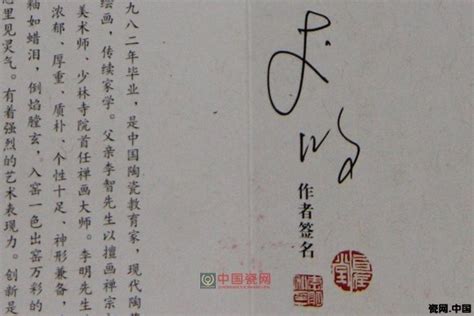 作者签名
九八二年毕业，是中国陶瓷教育家，现代陶
绘画，传续家学。父亲李智先生以擅画禅宗
美术师、少林寺院首任禅画大师。李明先生
浓郁、厚重、质朴、个性十足、神形兼备，
釉如蜡泪，倒焰膛玄，入窑一色出窑万彩的
里见灵气。有着强烈的艺术表现力。创新是
中国瓷网
瓷网.中国